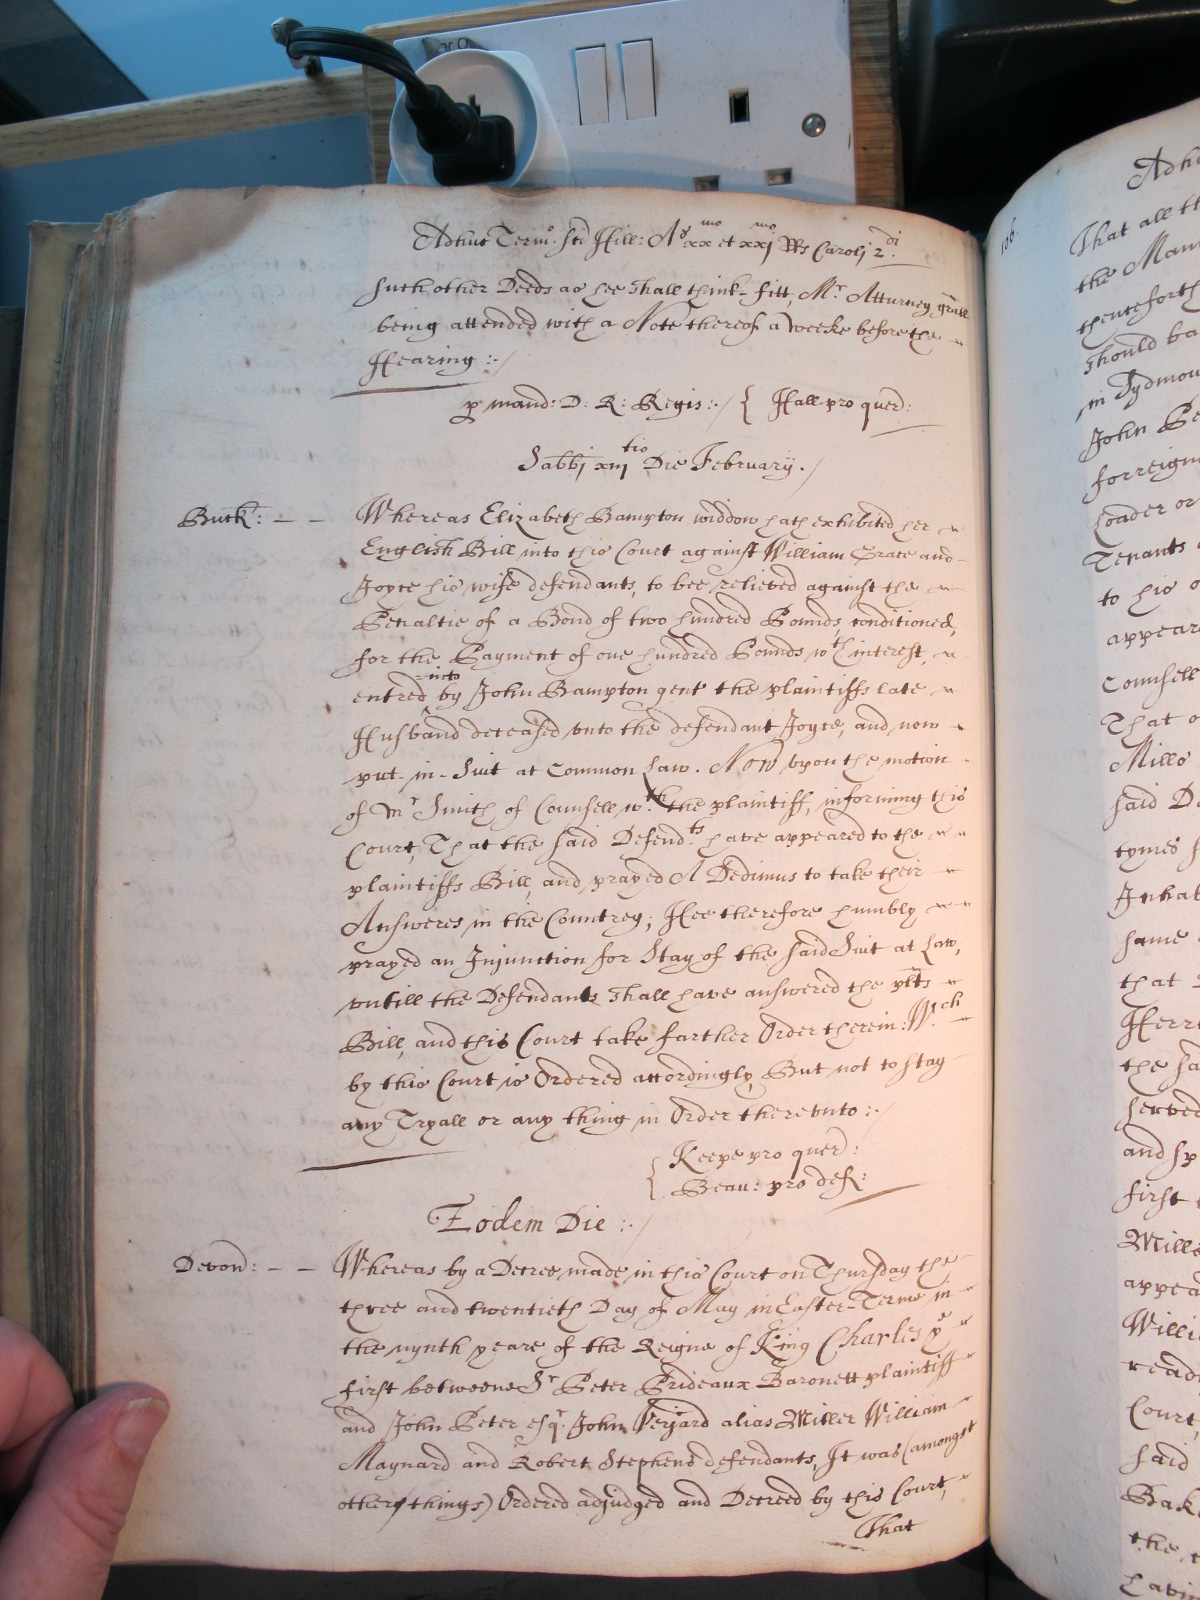 Adhuc Term.o Sti Hill: Ao xxmo et xxjmo Rs Caroli 2di.
such other Deeds as hee shall think-fitt, Mr. Atturney grall
being attended with a Note thereof a weeke before the
Hearing :./
p mand: D: R: Regis:./ { Hall pro quer:
Sabbi xiijtio Die February./
Buck: - - Whereas Elizabeth Bampton widdow hath exhibited her
English Bill into this Court against William Grace and
Joyce his wife defendants, to bee relieved against the
Penaltie of a Bond of two hundred Pounds, conditioned,
for the Payment of one hundred Pounds wth interest,
entred into by John Bampton gent the plaintiffs late
Husband deceased vnto the defendant Joyce, and now
put-in-Suit at Common Law. Now vpon the motion
of Mr Smith of Counsell wth the plaintiff, informing this
Court, That the said Defendts have appeared to the
plaintiffs Bill, and prayed A Dedimus to take their
Answeres in the Countrey; Hee therefore humbly
prayed an Injunction for Stay of the said Suit at Law,
vntill the Defendants shall have answered the plts
Bill, and this Court take farther Order therein: Wch
by this Court is Ordered accordingly, But not to stay
any Tryall or any thing in Order therevnto :./
{ Keepe pro quer:
Beau: pro def:
Eodem Die :./
Devon: - - Whereas by a Decree made in this Court on Thursday the
three and twentieth Day of May in Easter-Terme in
the nynth yeare of the Reigne of King Charles ye
first betweene Sr Peter Prideaux Baronett plaintiff
and John Peter esqr. John Verjard alias Miller William
Maynard and Robert Stephens defendants, It was (amongst
other things) Ordered adjudged and Decreed by this Court,
That
106.
Adhu
That all th
the Man
thenceforth
should ba
in Sydmou
John Pe
forreign
Loader or
Tenants
to his o
appear
Counsell
That o
Mills
said D
tymes
Inhab
same
that
Herr
the sa
served
and sp
first
Mills
appea
Willi
read
Court,
said
Bak
the